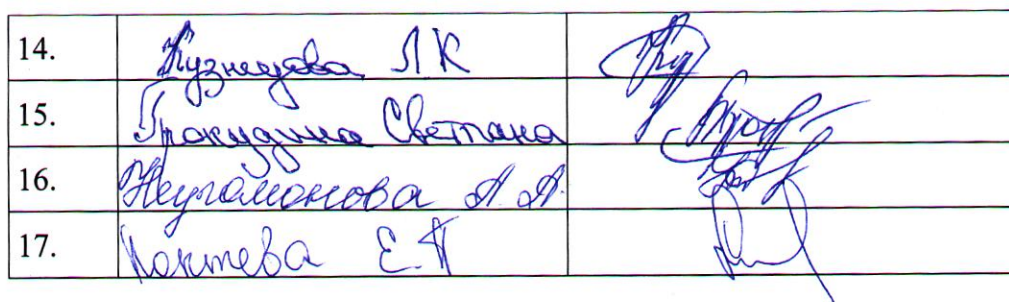 14. Кузнецова Л К
15. Прокудина Светлана
16. Неугомонова А. А.
17. Локтева Е. П